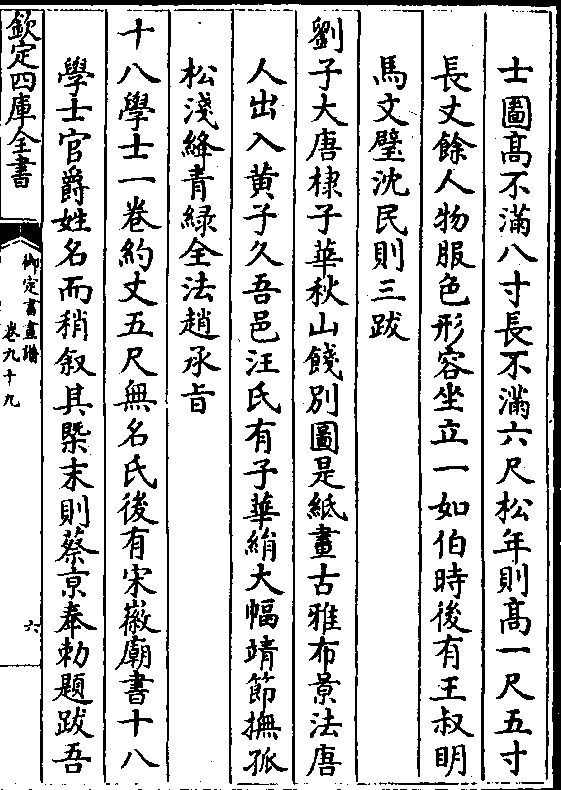 士圖髙不滿八寸長不滿六尺松年則髙一尺五寸
長丈餘人物服色形容坐立一如伯時後有王叔明
馬文璧沈民則三跋
劉子大唐棣子華秋山餞別圖是紙畫古雅布景法唐
人出入黄子久吾邑汪氏有子華絹大幅靖節撫孤
松淺絳青緑全法趙承旨
十八學士一卷約丈五尺無名氏後有宋徽廟書十八
學士官爵姓名而稍叙其槩末則蔡京奉勅題跋吾
欽定四庫全書
御定書畫譜
卷九十九
六